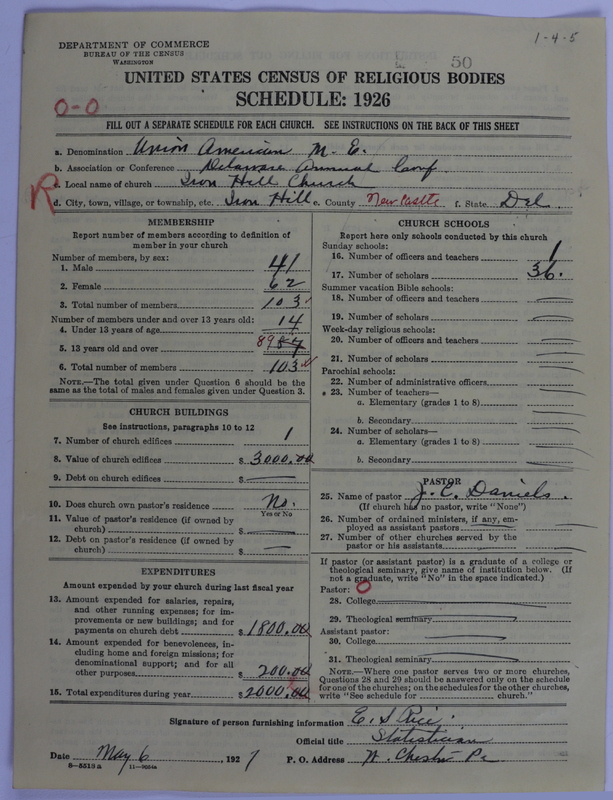 1-4-5
DEPARTMENT OF COMMERCE
BUREAU OF THE CENSUS
WASHINGTON
50
UNITED STATES CENSUS OF RELIGIOUS BODIES
SCHEDULE: 1926
0-0
FILL OUT A SEPARATE SCHEDULE FOR EACH CHURCH. SEE INSTRUCTIONS ON THE BACK OF THIS SHEET
a. Denomination Union American M. E.
b. Association or Conference Delaware Annual Conf
R
c. Local name of church Iron Hill Church
d. City, town, village, or township, etc. Iron Hill e. County New Castle f. State Del
MEMBERSHIP
Report number of members according to definition of
member in your church
Number of members, by sex:
1. Male 41
2. Female 62
3. Total number of members 103
Number of members under and over 13 years old:
4. Under 13 years of age 14
5. 13 years old and over 89
6. Total number of members 103
NOTE.—The total given under Question 6 should be the
same as the total of males and females given under Question 3.
CHURCH BUILDINGS
See instructions, paragraphs 10 to 12
7. Number of church edifices 1
8. Value of church edifices $ 3000.00
9. Debt on church edifices $
10. Does church own pastor's residence No.
Yes or No
11. Value of pastor's residence (if owned by
church) $
12. Debt on pastor's residence (if owned by
church) $
EXPENDITURES
Amount expended by your church during last fiscal year
13. Amount expended for salaries, repairs,
and other running expenses; for im-
provements or new buildings; and for
payments on church debt $ 1800.00
14. Amount expended for benevolences, in-
cluding home and foreign missions; for
denominational support; and for all
other purposes $ 200.00
15. Total expenditures during year $ 2000.00
CHURCH SCHOOLS
Report here only schools conducted by this church
Sunday schools:
16. Number of officers and teachers 1
17. Number of scholars 36.
Summer vacation Bible schools:
18. Number of officers and teachers
19. Number of scholars
Week-day religious schools:
20. Number of officers and teachers
21. Number of scholars
Parochial schools:
22. Number of administrative officers
23. Number of teachers—
a. Elementary (grades 1 to 8)
b. Secondary
24. Number of scholars—
a. Elementary (grades 1 to 8)
b. Secondary
PASTOR
25. Name of pastor J. C. Daniels.
(If church has no pastor, write "None")
26. Number of ordained ministers, if any, em-
ployed as assistant pastors
27. Number of other churches served by the
pastor or his assistants
If pastor (or assistant pastor) is a graduate of a college or
theological seminary, give name of institution below. (If
not a graduate, write "No" in the space indicated.)
Pastor: 0
28. College
29. Theological seminary
Assistant pastor:
30. College
31. Theological seminary
NOTE.—Where one pastor serves two or more churches,
Questions 28 and 29 should be answered only on the schedule
for one of the churches; on the schedules for the other churches,
write "See schedule for church."
Signature of person furnishing information E. S Rice.
Official title Statistician
Date May 6, 1927 P. O. Address W. Chester Pa
8—5513 a 11—9064a